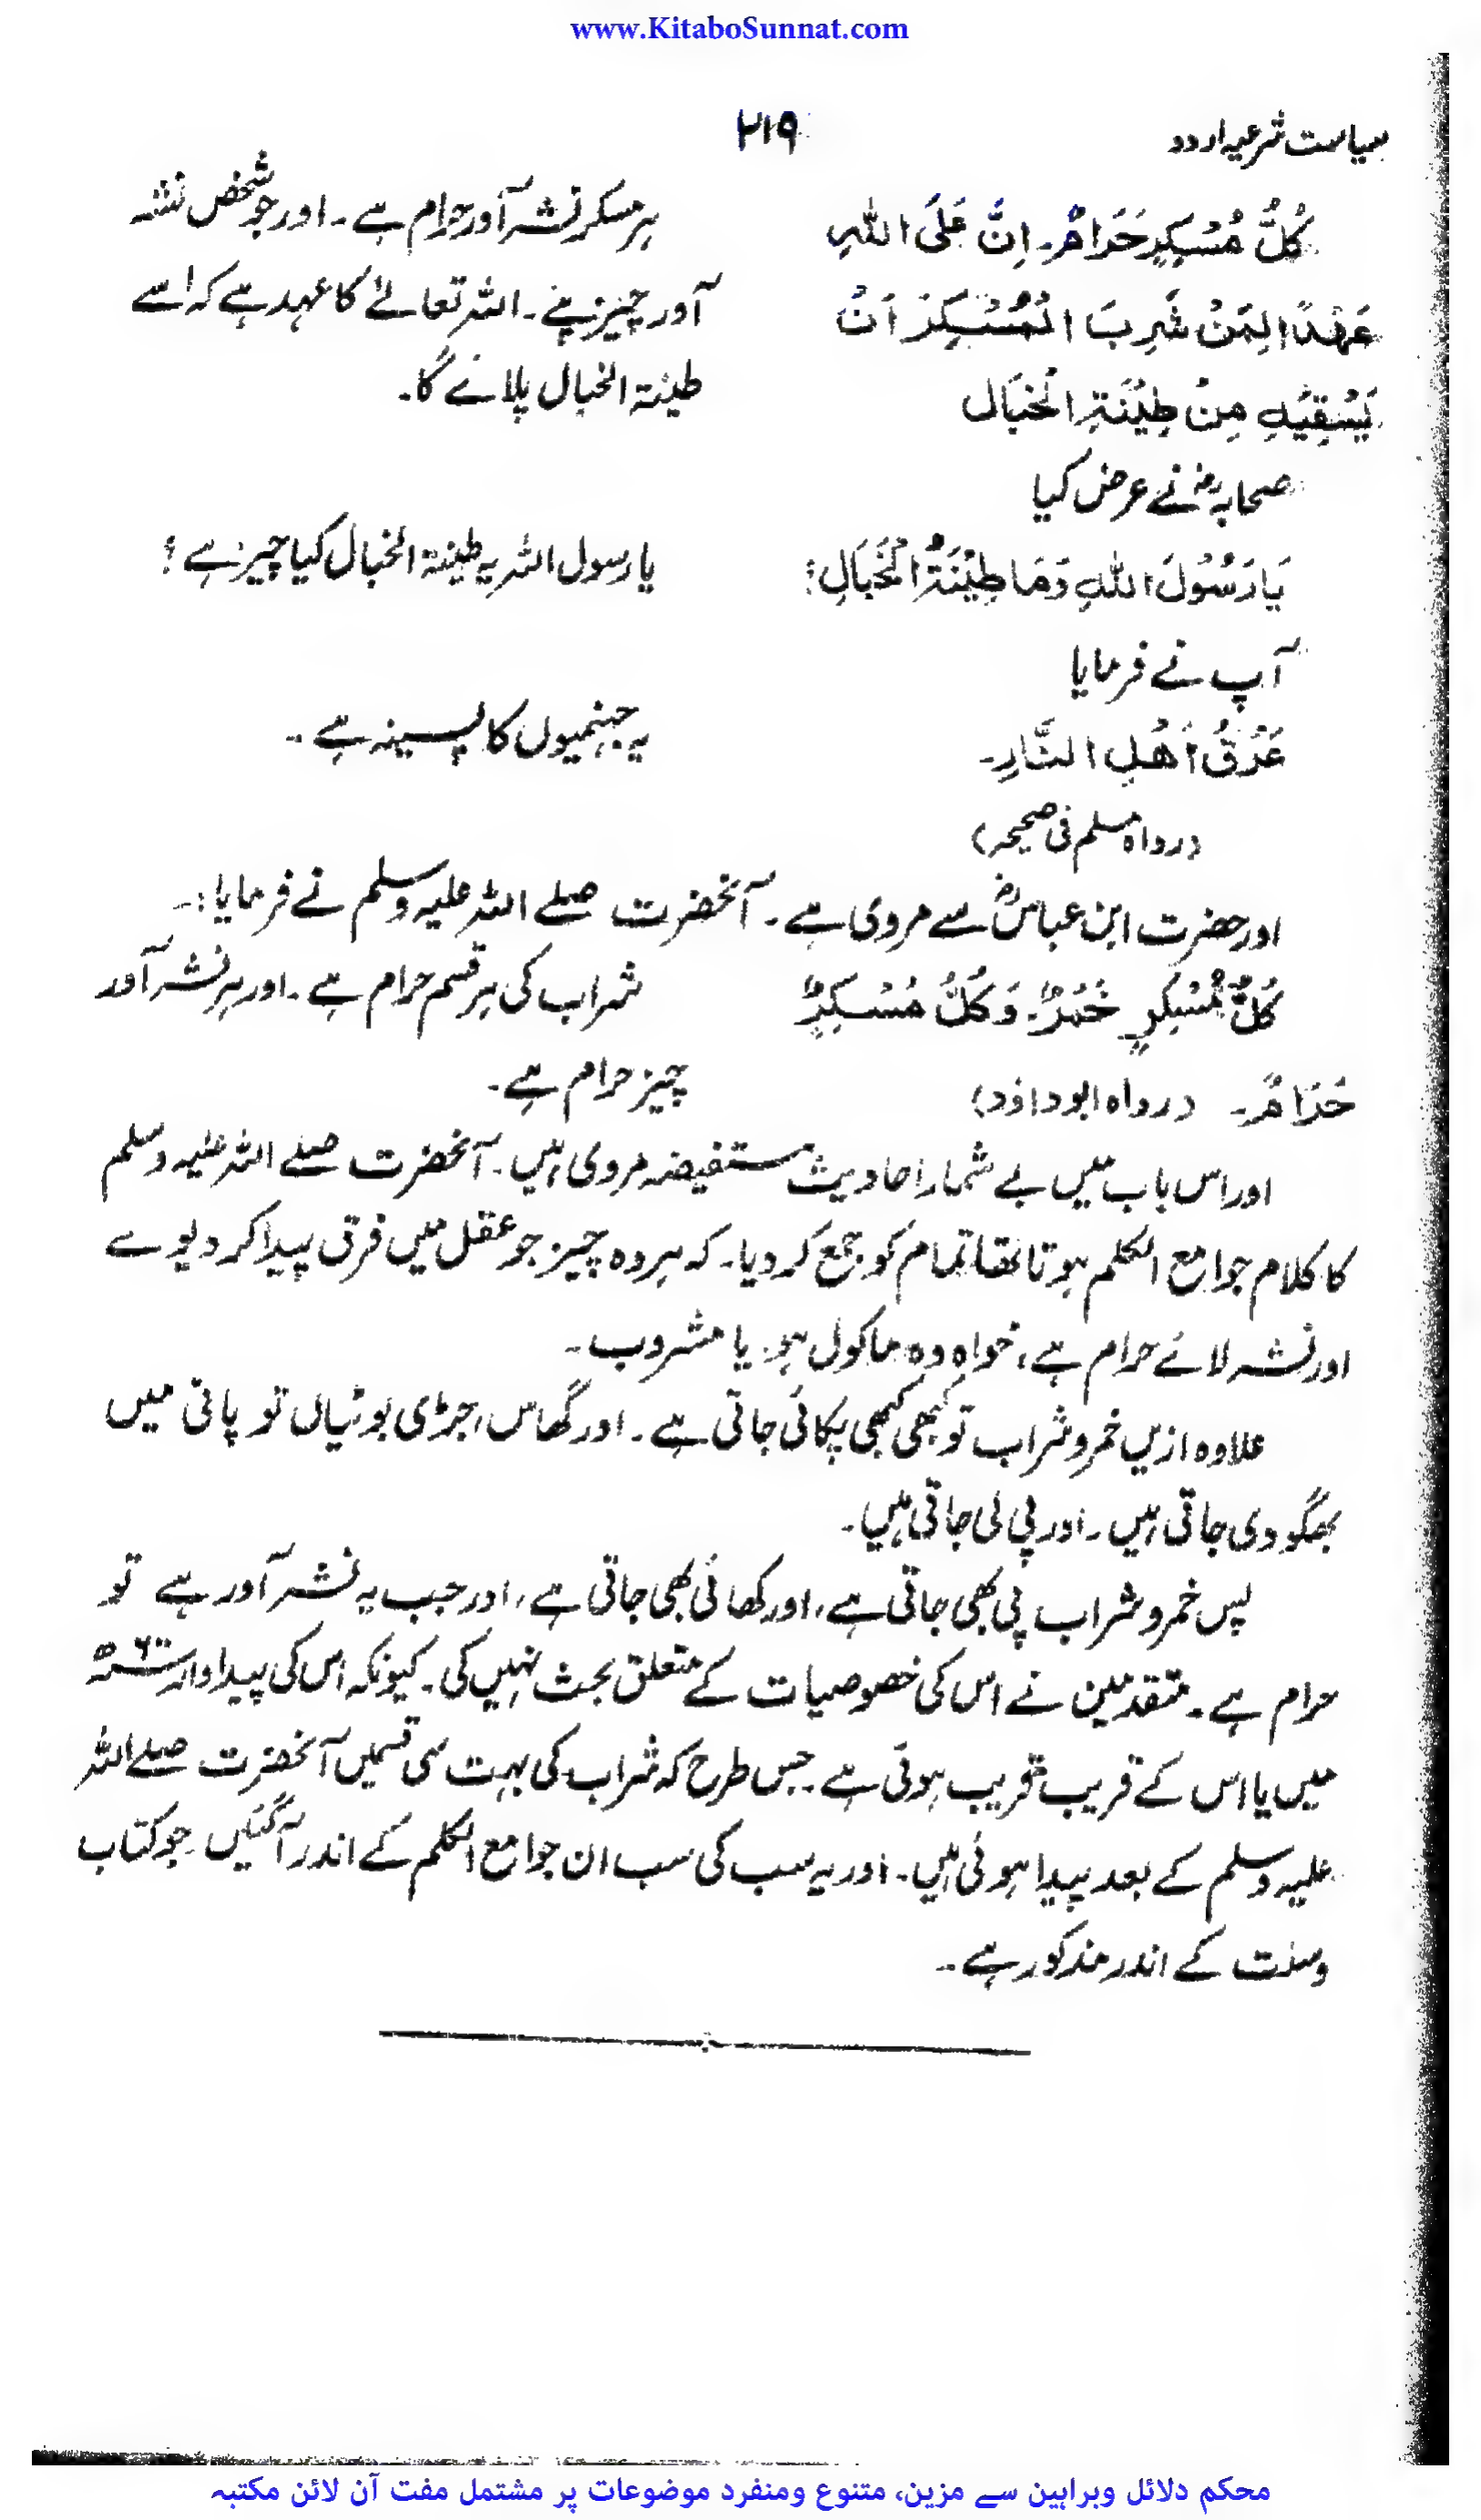 www.KitaboSunnat.com
سیاست شرعیہ اردو
۲۱۹
كُلُّ مُسْكِرٍ حَرَامٌ۔ اِنَّ عَلَى اللهِ
عَهْدًا لِمَنْ شَرِبَ الْمُسْكِرَ اَنْ
يَسْقِيَهِ مِنْ طِيْنَةِ الْخَبَالِ
ہر مسکر نشہ آور حرام ہے۔ اور جو شخص نشہ
آور چیز پئے۔ اللہ تعالےٰ کا عہد ہے کہ اسے
طینۃ الخبال پلائے گا۔
صحابہؓ نے عرض کیا
يَا رَسُوْلَ اللهِ وَمَا طِيْنَةُ الْخَبَالِ؟
یا رسول اللہ یہ طینۃ الخبال کیا چیز ہے؟
آپ نے فرمایا
عَرَقُ اَهْلِ النَّارِ۔
یہ جہنمیوں کا پسینہ ہے۔
(رواہ مسلم فی صحیحہ)
اور حضرت ابن عباسؓ سے مروی ہے۔ آنحضرت صلے اللہ علیہ وسلم نے فرمایا:۔
كُلُّ مُسْكِرٍ خَمْرٌ۔ وَكُلُّ مُسْكِرٍ
حَرَامٌ۔ (رواہ ابوداؤد)
شراب کی ہر قسم حرام ہے۔ اور ہر نشہ آور
چیز حرام ہے۔
اور اس باب میں بے شمار احادیث مستفیضہ مروی ہیں۔ آنحضرت صلے اللہ علیہ وسلم
کا کلام جوامع الکلم ہوتا تھا تمام کو جمع کر دیا۔ کہ ہر وہ چیز جو عقل میں فرق پیدا کر دیوے
اور نشہ لائے حرام ہے، خواہ وہ ماکول ہو یا مشروب۔
علاوہ ازیں خمر و شراب تو کبھی کبھی پکائی جاتی ہے۔ اور گھاس، جڑی بوٹیاں تو پانی میں
بھگو دی جاتی ہیں۔ اور پی لی جاتی ہیں۔
پس خمر و شراب پی بھی جاتی ہے، اور کھائی بھی جاتی ہے، اور جب یہ نشہ آور ہے تو
حرام ہے۔ متقدمین نے اس کی خصوصیات کے متعلق بحث نہیں کی۔ کیونکہ اس کی پیداوار ۶۰۰ھ
میں یا اس کے قریب قریب ہوئی ہے۔ جس طرح کہ شراب کی بہت سی قسمیں آنحضرت صلے اللہ
علیہ وسلم کے بعد پیدا ہوئی ہیں۔ اور یہ سب کی سب ان جوامع الکلم کے اندر آ گئیں جو کتاب
وسنت کے اندر مذکور ہے۔
محکم دلائل وبراہین سے مزین، متنوع ومنفرد موضوعات پر مشتمل مفت آن لائن مکتبہ